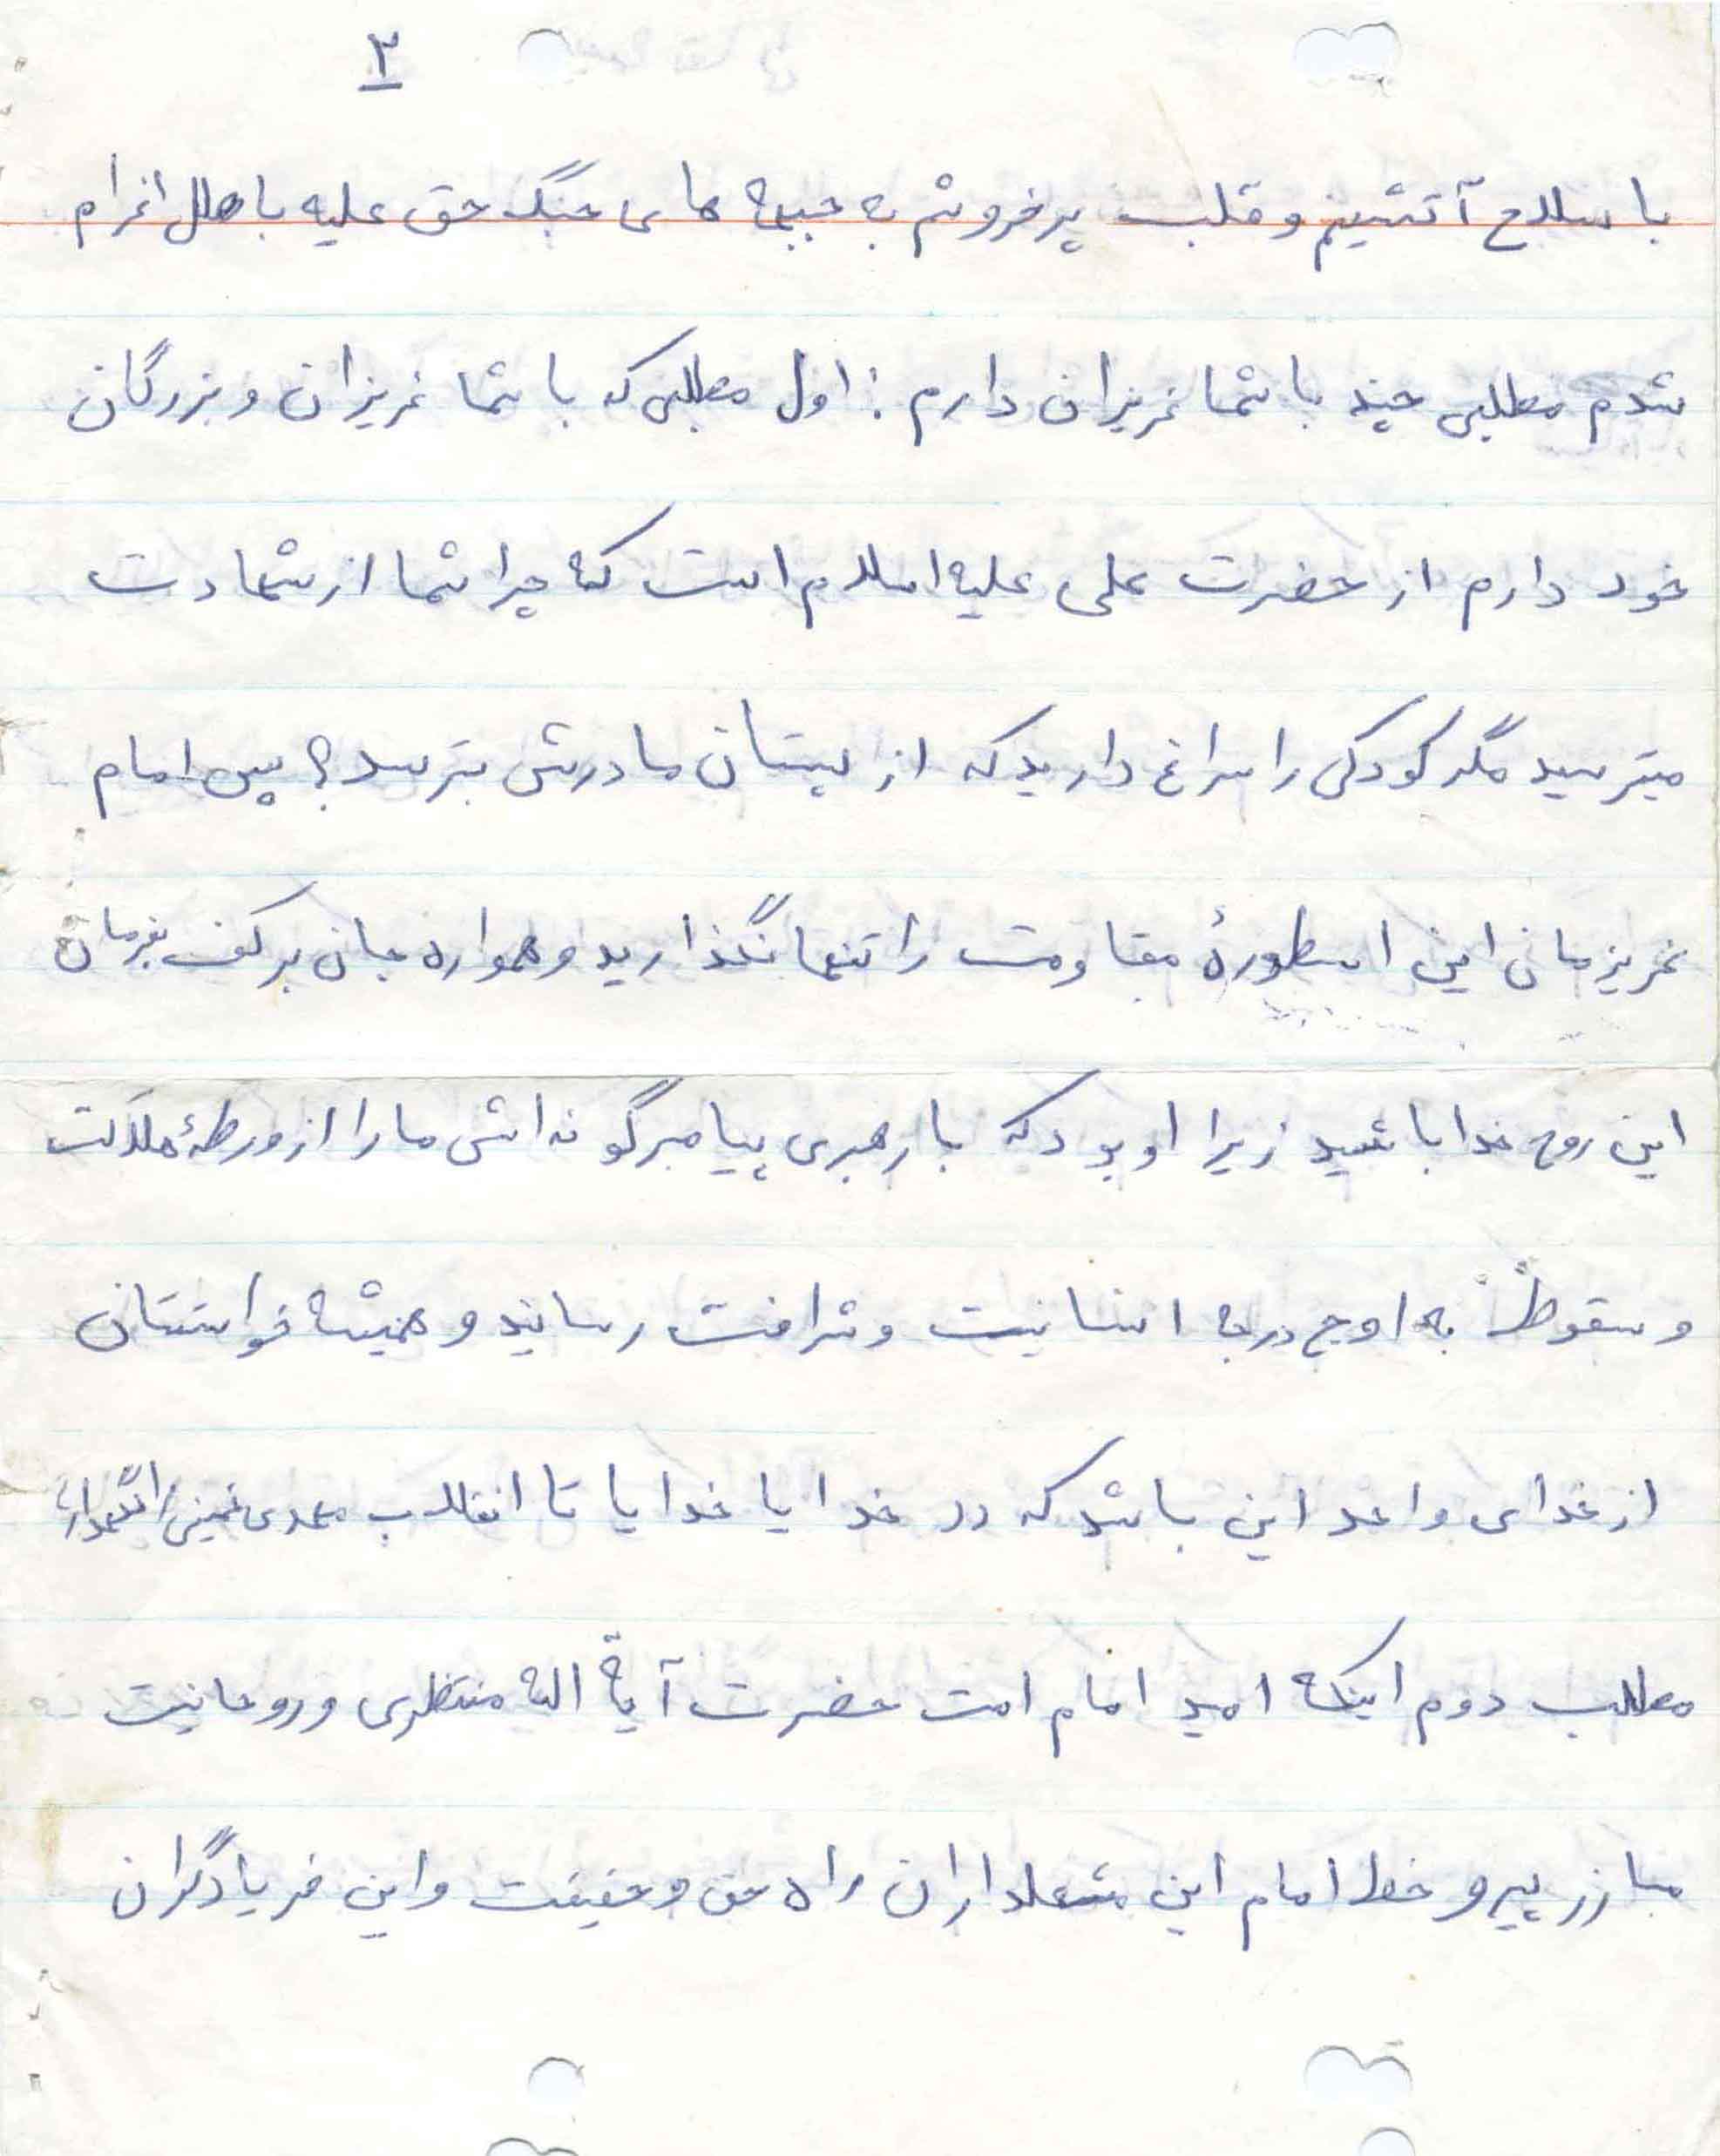 ۳
با سلاح آتشینم و قلب پرخروشم به جبهه های جنگ حق علیه باطل اغزام
شدم مطلبی چند با شما عزیزان دارم : اول مطلبی که با شما عزیزان و بزرگان
خود دارم از حضرت علی علیه اسلام است که چرا شما از شهادت
میترسید مگر کودکی را سراغ دارید که از پستان مادرش بترسد ؟ پس امام
عزیزمان این اسطورهٔ مقاومت را تنها نگذارید و همواره جان بر کف بفرمان
این روح خدا باشید زیرا او بود که با رهبری پیامبرگونه اش ما را از ورطهٔ هلاکت
و سقوط به اوج درجه انسانیت و شرافت رساند و همیشه خواستتان
از خدای واحد این باشد که دد خدایا خدایا تا انقلاب مهدی خمینی را نگهدار،،
مطلب دوم اینکه امید امام امت حضرت آیة اله منتظری و روحانیت
مبارز پیرو خط امام این مشعلداران راه حق و حقیقت و این فریادگران